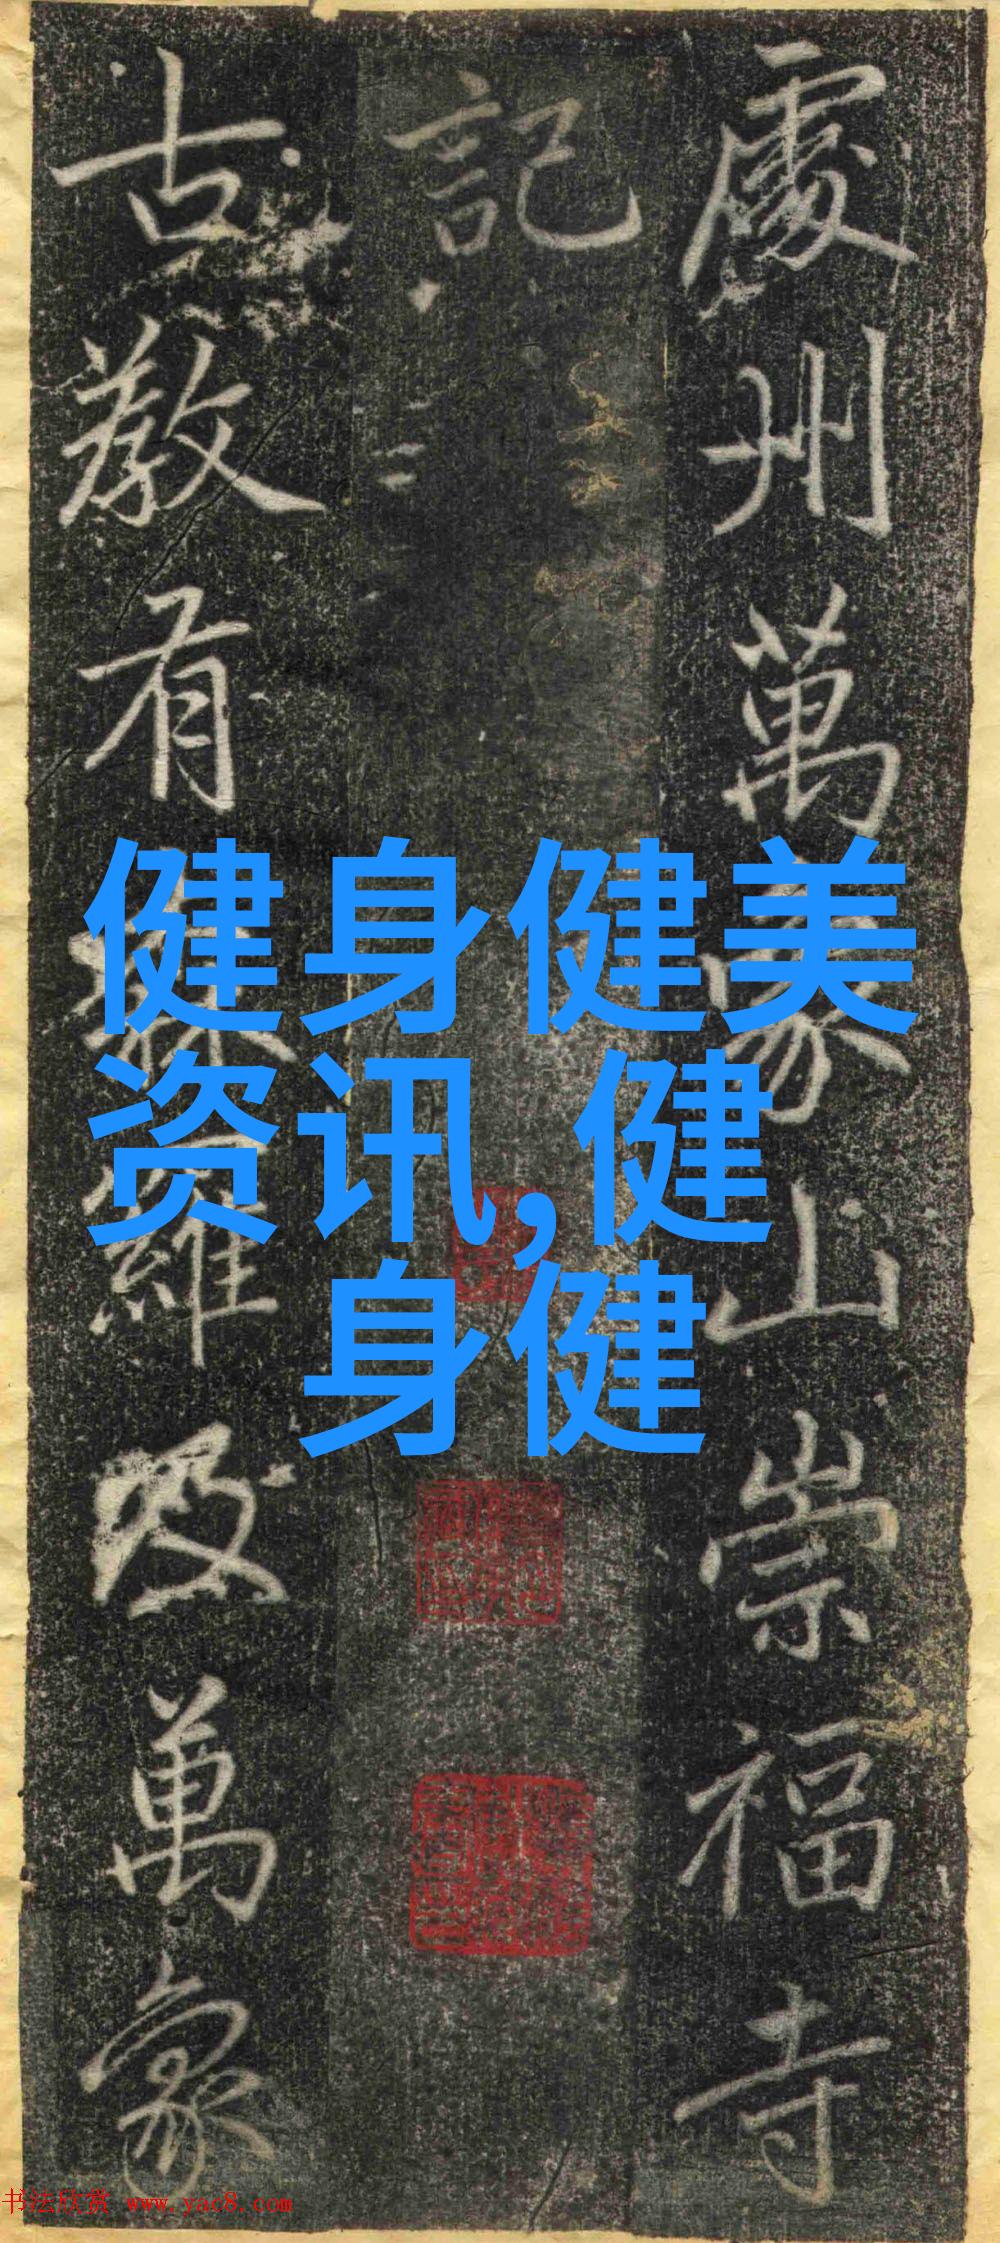 處州萬象山崇福寺
記
古教有森羅及萬象
健身健美
资讯,健
身健
书法欣赏 www.yac8.com